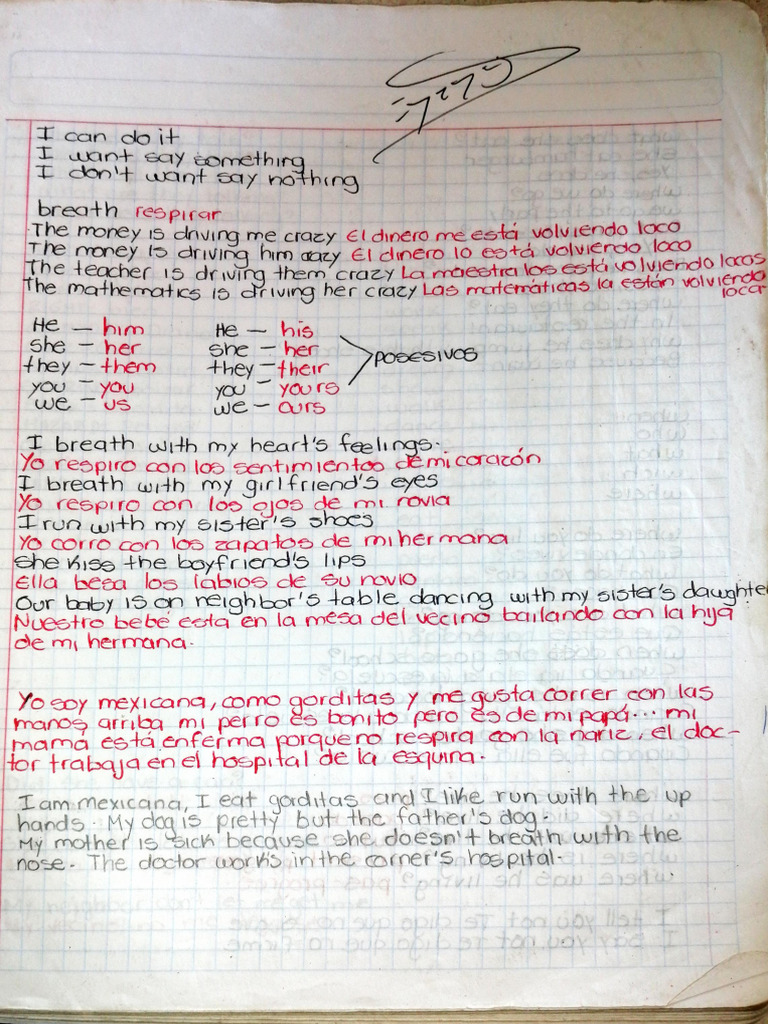 I can do it
I want say something
I don't want say nothing
breath respirar
The money is driving me crazy El dinero me está volviendo loco
The money is driving him crazy El dinero lo está volviendo loco
The teacher is driving them crazy La maestra los está volviendo locos
The mathematics is driving her crazy Las matemáticas la están volviendo
loca
He – him He – his
she – her she – her
they – them they – their
posesivos
you – you you – yours
we – us we – ours
I breath with my heart's feelings.
Yo respiro con los sentimientos de mi corazón
I breath with my girlfriend's eyes
Yo respiro con los ojos de mi novia
I run with my sister's shoes
Yo corro con los zapatos de mi hermana
she kiss the boyfriend's lips
Ella besa los labios de su novio
Our baby is on neighbor's table dancing with my sister's daughte
Nuestro bebé esta en la mesa del vecino bailando con la hija
de mi hermana.
Yo soy mexicana, como gorditas y me gusta correr con las
manos arriba mi perro es bonito pero es de mi papá... mi
mamá está enferma porque no respira con la nariz, el doc-
tor trabaja en el hospital de la esquina.
I am mexicana, I eat gorditas and I like run with the up
hands. My dog is pretty but the father's dog.
My mother is sick because she doesn't breath with the
nose. The doctor works in the corner's hospital.